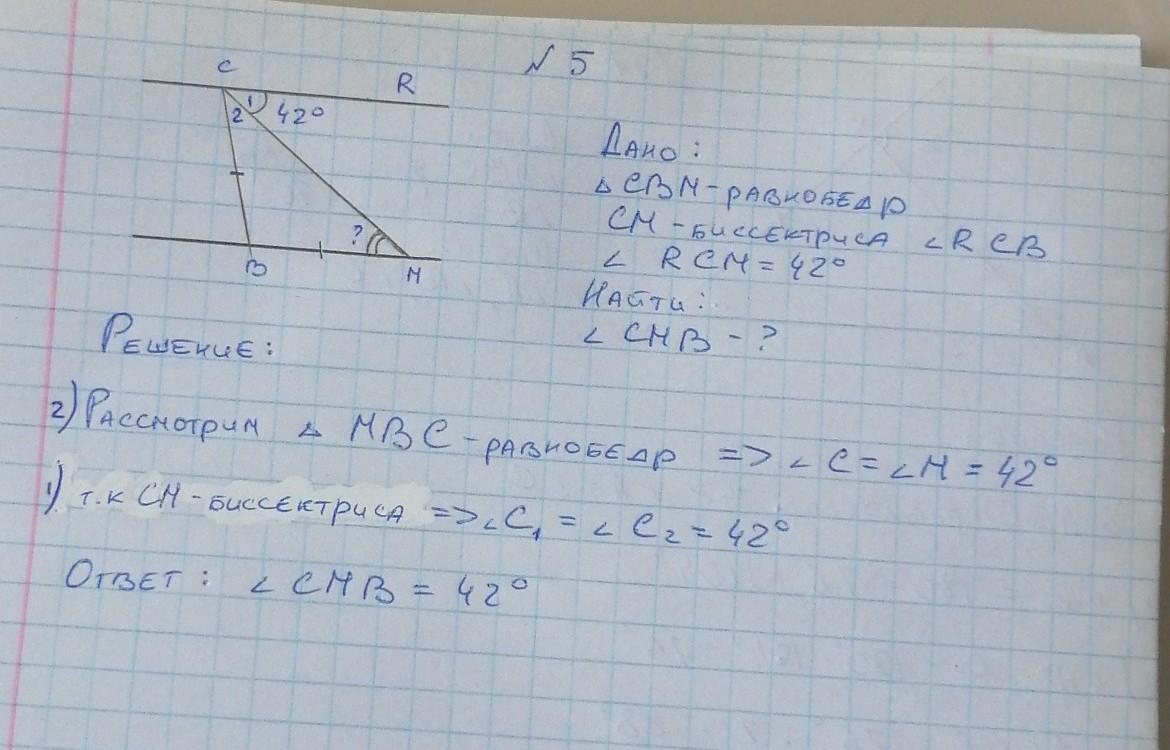 № 5
C
R
1
2
42°
?
B
M
Дано:
△ CBM - равнобедр
CM - биссектриса ∠RCB
∠ RCM = 42°
Найти:
∠ CMB - ?
Решение:
2) Рассмотрим △ MBC - равнобедр => ∠C = ∠M = 42°
1) т.к CM - биссектриса => ∠C₁ = ∠C₂ = 42°
Ответ: ∠CMB = 42°